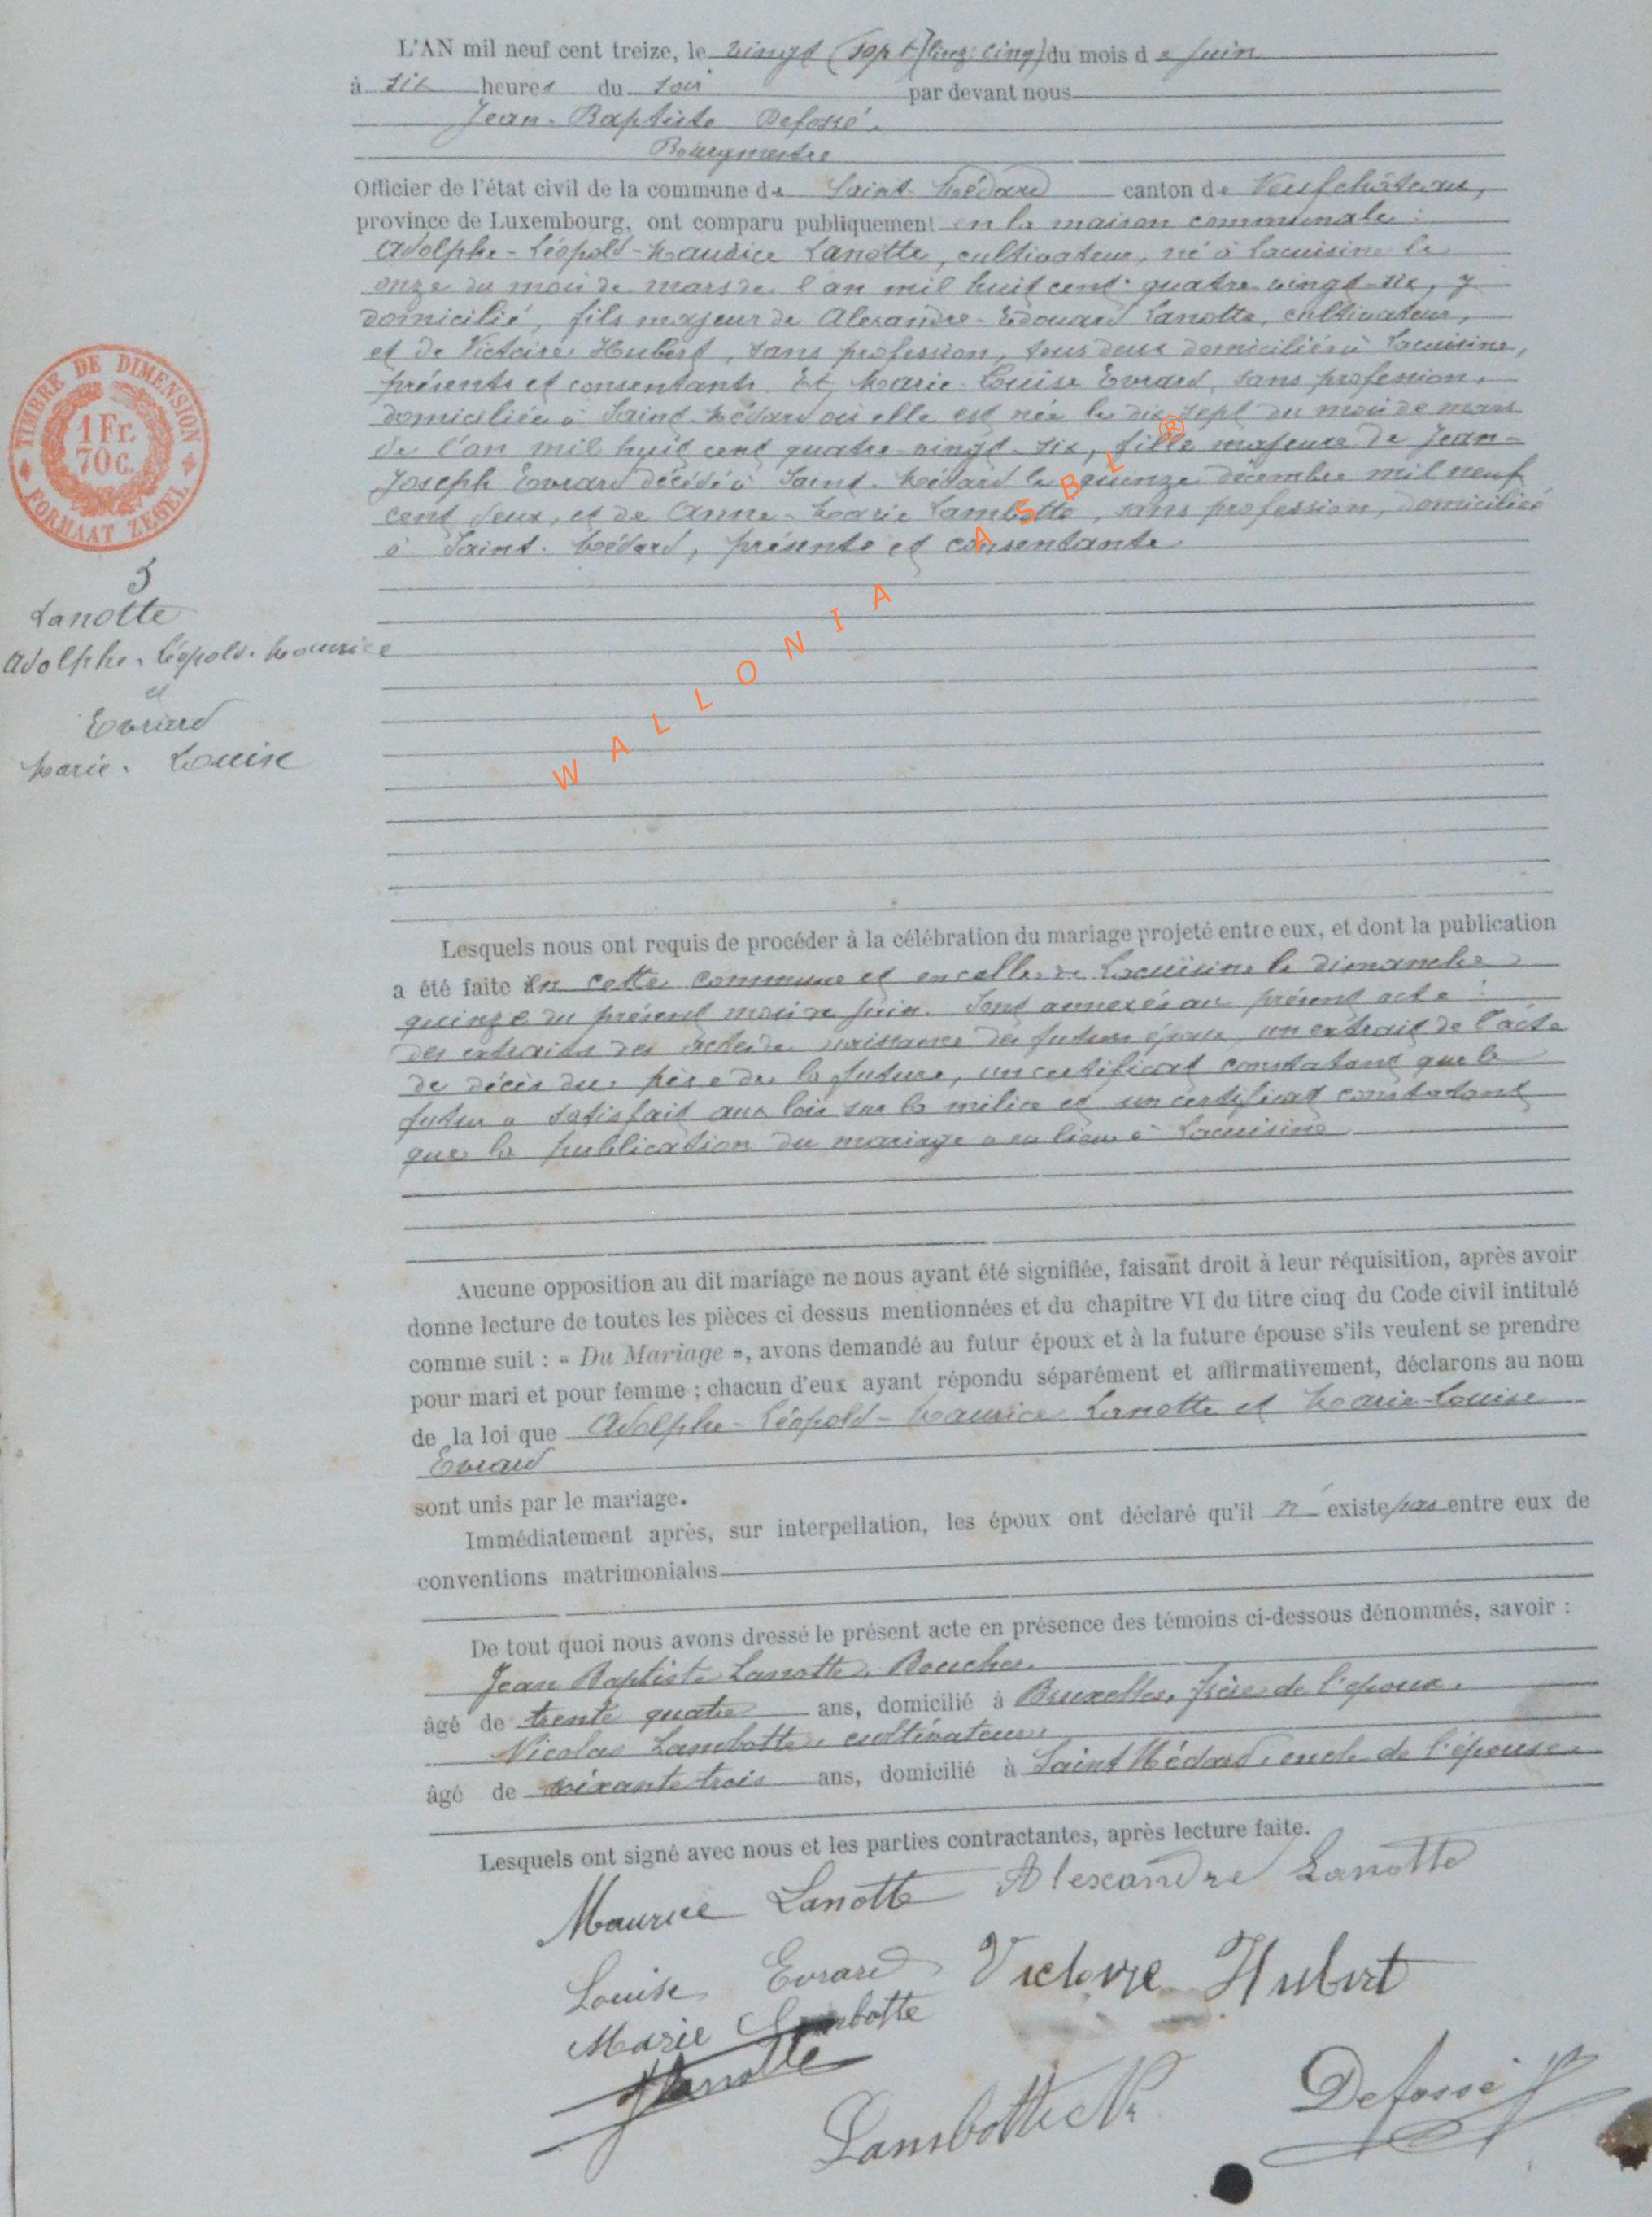 L'AN mil neuf cent treize, le vingt (sept) (lisez: cinq) du mois de juin
à six heures du soir par devant nous
Jean-Baptiste Defossé,
Bourgmestre
Officier de l'état civil de la commune de Saint-Médard canton de Neufchâteau,
province de Luxembourg, ont comparu publiquement en la maison communale:
Adolphe-Léopold-Maurice Lanotte, cultivateur, né à Lacuisine le
onze du mois de mars de l'an mil huit cent quatre vingt-six, y
domicilié, fils majeur de Alexandre-Edouard Lanotte, cultivateur,
et de Victoire Hubert, sans profession, tous deux domiciliés à Lacuisine,
présents et consentants. Et, Marie-Louise Evrard, sans profession,
domiciliée à Saint-Médard où elle est née le dix sept du mois de mars
de l'an mil huit cent quatre-vingt-six, fille majeure de Jean-
Joseph Evrard décédé à Saint-Médard le quinze décembre mil neuf
cent deux, et de Anne-Marie Lambotte, sans profession, domiciliée
à Saint-Médard, présente et consentante
TIMBRE DE DIMENSION
1 Fr.
70 c.
FORMAAT ZEGEL
5
Lanotte
Adolphe-Léopold-Maurice
et
Evrard
Marie-Louise
WALLONIA ASBL ®
Lesquels nous ont requis de procéder à la célébration du mariage projeté entre eux, et dont la publication
a été faite en cette commune et en celle de Lacuisine le dimanche
quinze du présent mois de juin. Sont annexés au présent acte:
des extraits des actes de naissance des futurs époux, un extrait de l'acte
de décès du père de la future, un certificat constatant que le
futur a satisfait aux lois sur la milice et un certificat constatant
que la publication du mariage a eu lieu à Lacuisine
Aucune opposition au dit mariage ne nous ayant été signifiée, faisant droit à leur réquisition, après avoir
donne lecture de toutes les pièces ci dessus mentionnées et du chapitre VI du titre cinq du Code civil intitulé
comme suit : « Du Mariage », avons demandé au futur époux et à la future épouse s'ils veulent se prendre
pour mari et pour femme ; chacun d'eux ayant répondu séparément et affirmativement, déclarons au nom
de la loi que Adolphe-Léopold-Maurice Lanotte et Marie-Louise
Evrard
sont unis par le mariage.
Immédiatement après, sur interpellation, les époux ont déclaré qu'il n'existe pas entre eux de
conventions matrimoniales
De tout quoi nous avons dressé le présent acte en présence des témoins ci-dessous dénommés, savoir :
Jean Baptiste Lanotte, Boucher,
âgé de trente quatre ans, domicilié à Bruxelles, frère de l'époux.
Nicolas Lambotte, cultivateur,
âgé de soixante trois ans, domicilié à Saint Médard, oncle de l'épouse.
Lesquels ont signé avec nous et les parties contractantes, après lecture faite.
Maurice Lanotte Alexandre Lanotte
Louise Evrard Victoire Hubert
Marie Lambotte
Lanotte
Lambotte N. Defossé